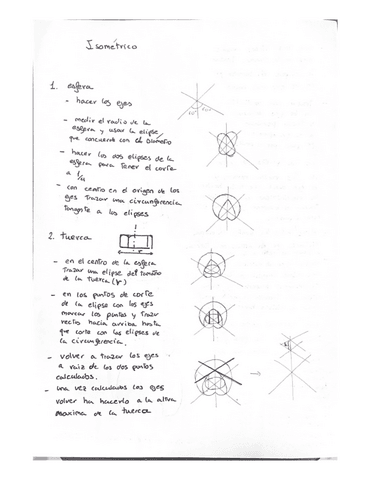 Isométrico
1. esfera
- hacer los ejes
- medir el radio de la
esfera y usar la elipse
que concuerde con el diametro
- hacer los dos elipses de la
esfera para tener el corte
a 1/4
- con centro en el origen de los
ejes trazar una circunferencia
tangente a los elipses
2. tuerca
r
- en el centro de la esfera
trazar una elipse del tamaño
de la tuerca (r)
- en los puntos de corte
de la elipse con los ejes
marcar los puntos y trazar
rectas hacia arriba hasta
que corte con los elipses de
la circunferencia.
- volver a trazar los ejes
a raiz de los dos puntos
calculados.
- una vez calculados los ejes
volver ha hacerlo a la altura
maxima de la tuerca